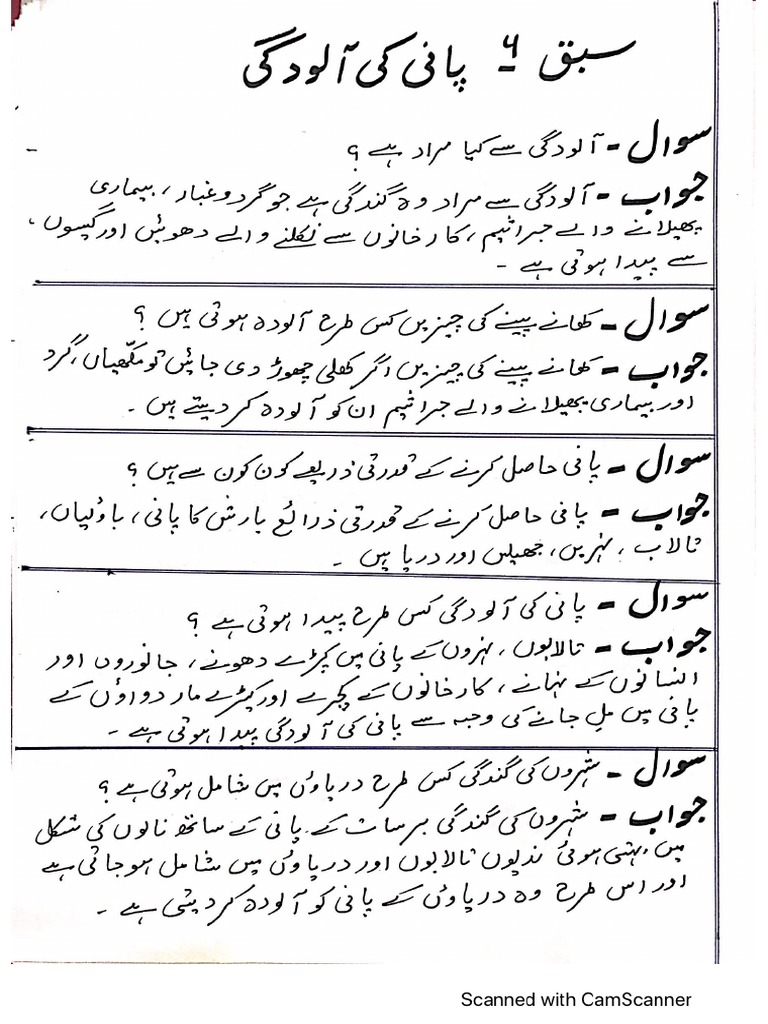 سبق ۶ - پانی کی آلودگی
سوال - آلودگی سے کیا مراد ہے ؟
جواب - آلودگی سے مراد وہ گندگی ہے جو گرد و غبار ، بیماری
پھیلانے والے جراثیم ، کارخانوں سے نکلنے والے دھوئیں اور گیسوں ،
سے پیدا ہوتی ہے -
سوال - کھانے پینے کی چیزیں کس طرح آلودہ ہوتی ہیں ؟
جواب - کھانے پینے کی چیزیں اگر کھلی چھوڑ دی جائیں تو مکھیاں ، گرد
اور بیماری پھیلانے والے جراثیم ان کو آلودہ کر دیتے ہیں -
سوال - پانی حاصل کرنے کے قدرتی ذریعے کون کون سے ہیں ؟
جواب - پانی حاصل کرنے کے قدرتی ذرائع بارش کا پانی ، باؤلیاں ،
تالاب ، نہریں ، جھیلیں اور دریا ہیں -
سوال - پانی کی آلودگی کس طرح پیدا ہوتی ہے ؟
جواب - تالابوں ، نہروں کے پانی میں کپڑے دھونے ، جانوروں اور
انسانوں کے نہانے ، کارخانوں کے کچرے اور کیڑے مار دواؤں کے
پانی میں مل جانے کی وجہ سے پانی کی آلودگی پیدا ہوتی ہے -
سوال - شہروں کی گندگی کس طرح دریاؤں میں شامل ہوتی ہے ؟
جواب - شہروں کی گندگی برسات کے پانی کے ساتھ نالوں کی شکل
میں بہتی ہوئی ندیوں تالابوں اور دریاؤں میں شامل ہو جاتی ہے
اور اس طرح وہ دریاؤں کے پانی کو آلودہ کر دیتی ہے -
Scanned with CamScanner